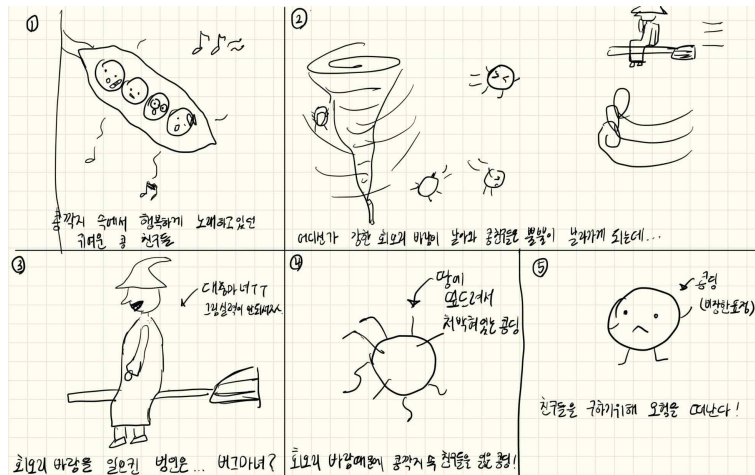 ①
콩깍지 속에서 행복하게 노래하고있던
귀여운 콩 친구들
②
어디선가 강한 회오리 바람이 날아와 콩친구들은 뿔뿔이 날라가게 되는데...
③
대충마녀ㅜㅜ
그림실력이 안되네요..
회오리 바람을 일으킨 범인은... 버그마녀?
④
땅에
엎드려서
처박혀있는 콩딩
회오리 바람때문에 콩깍지 속 친구들을 잃은 콩딩!
⑤
콩딩
(비장한표정)
친구들을 구하기위해 모험을 떠난다!